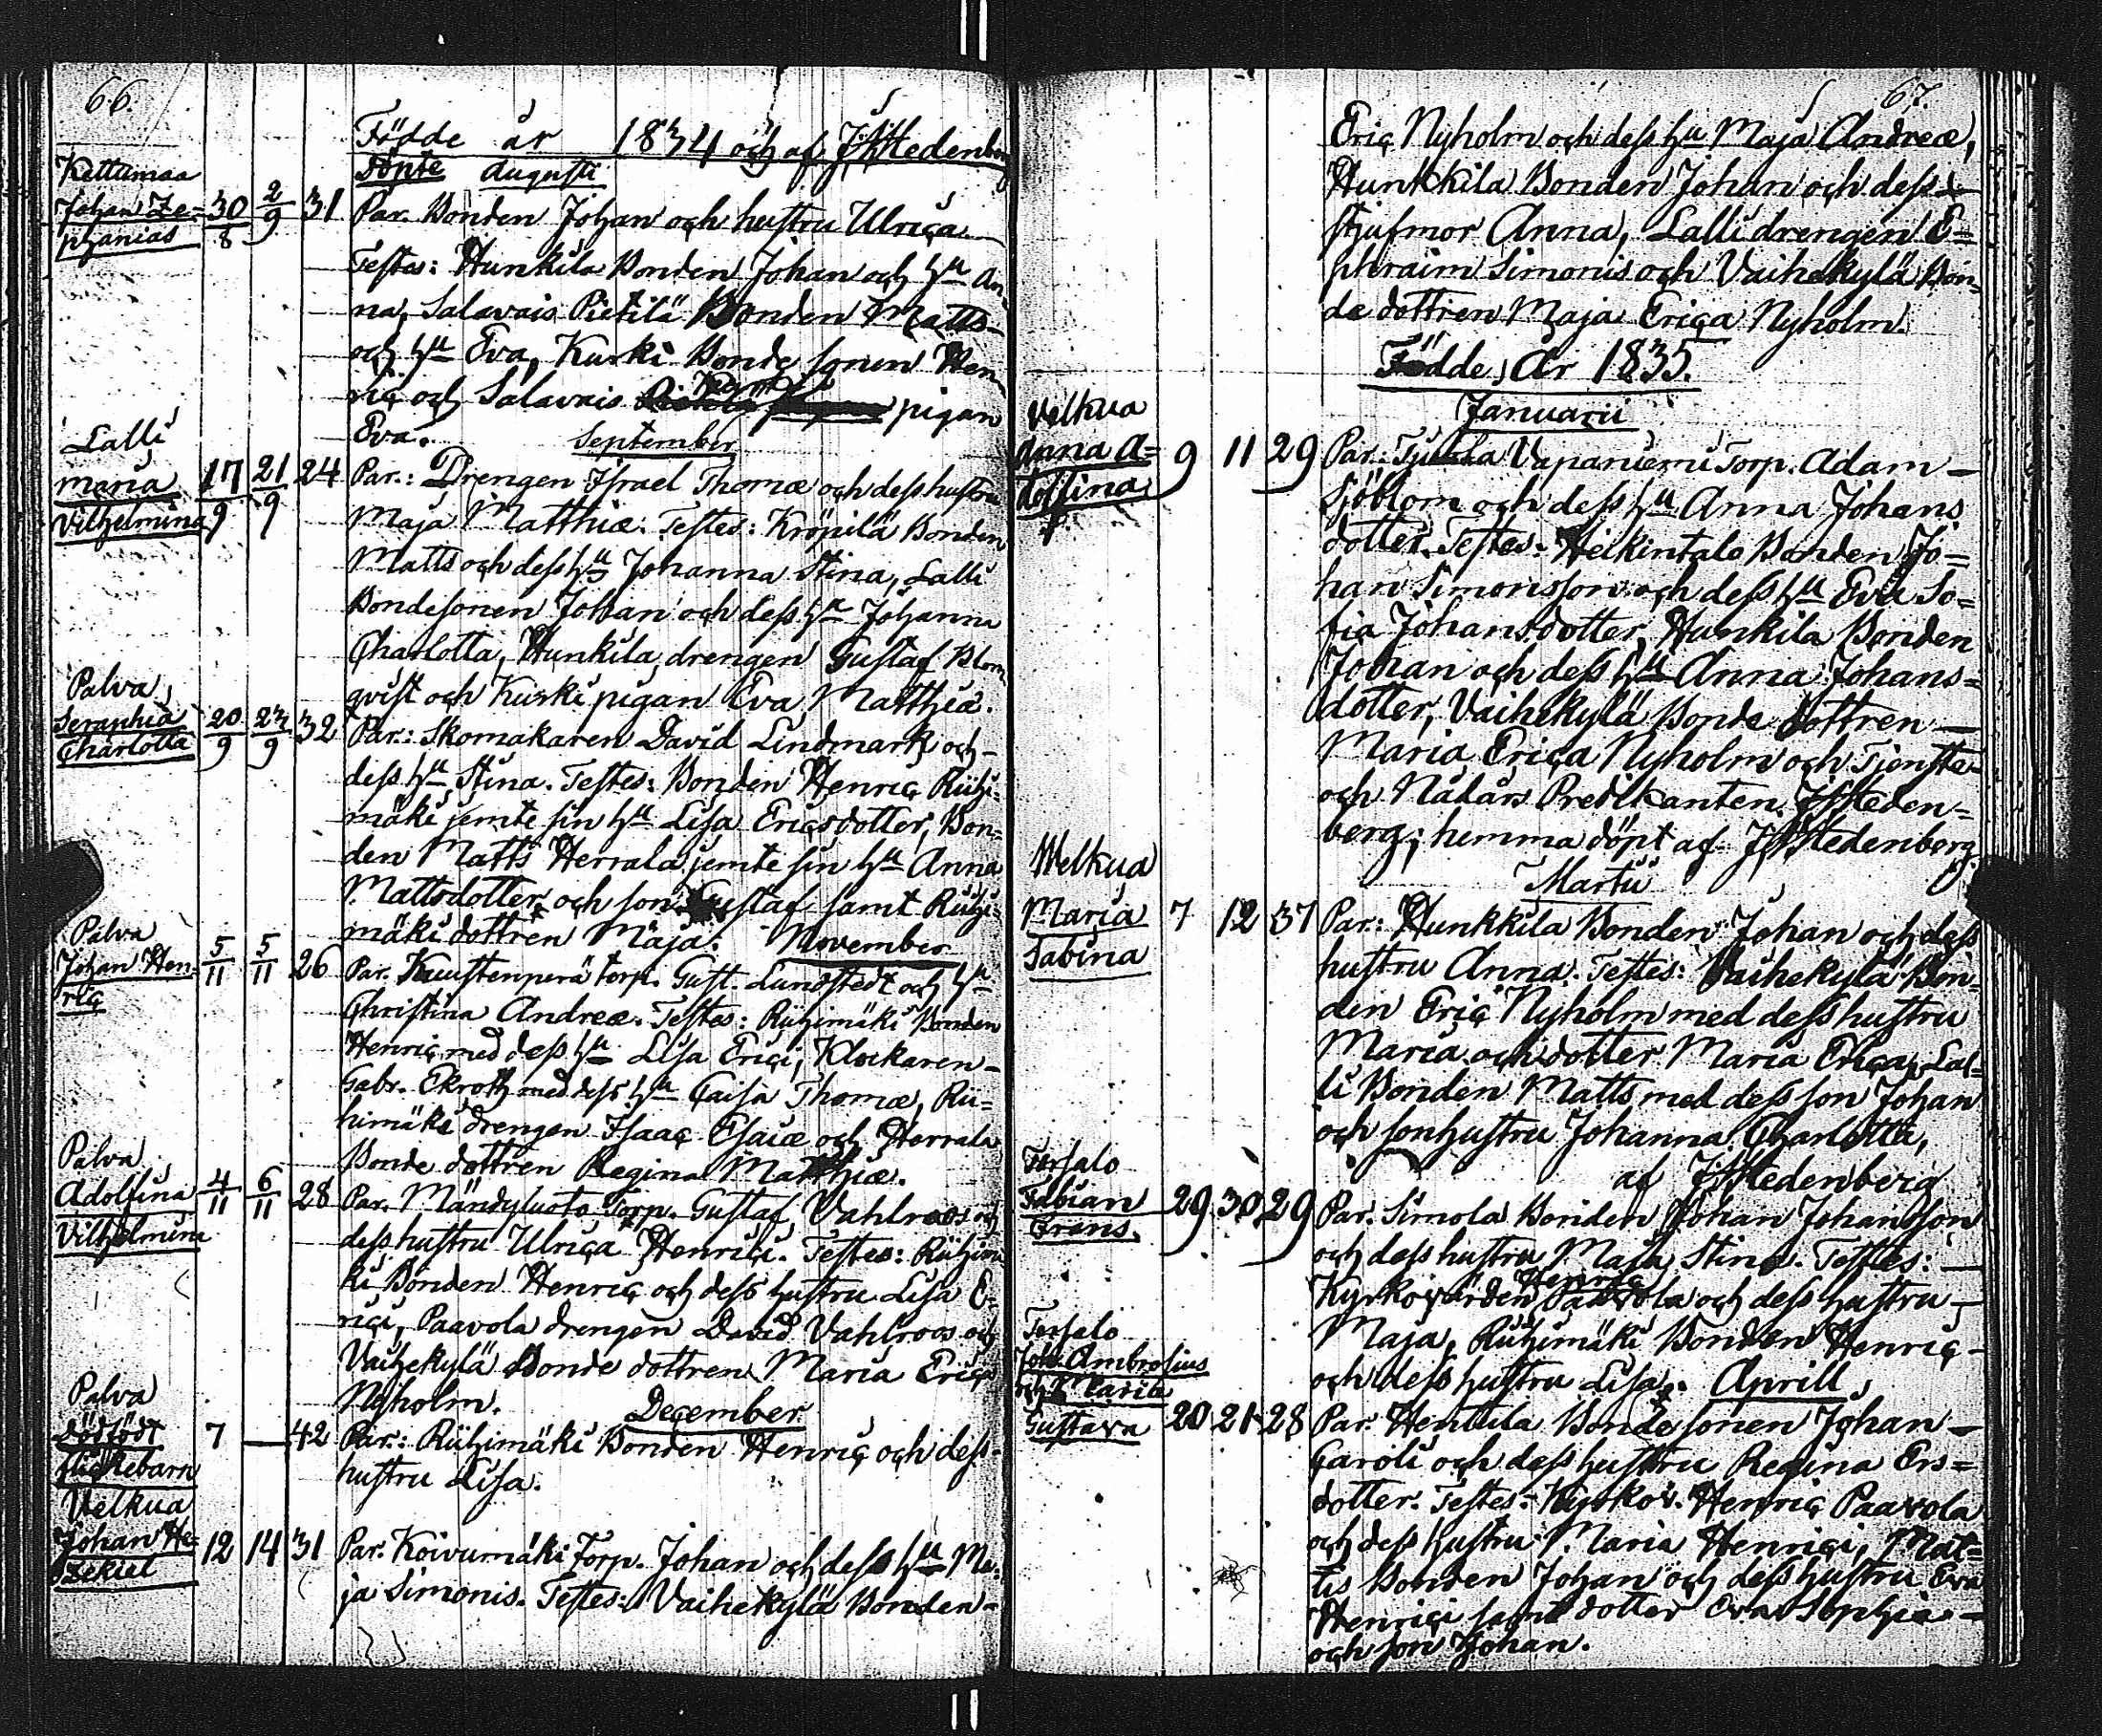 66.
Födde år 1834 och af J. Stedenberg
döpte Augusti
Kettumaa
Johan Ze- 30/8 2/9 31 Par. Bonden Johan och hustru Ulrica
phanias
Testes: Hunkila Bonden Johan och hu An-
na, Salavais Pietilä Bonden Matts
och hu Eva, Kurki Bonde sonen Hen-
ric och Salavais pigan
Eva.
September
Lalli
Maria 17/9 21/9 24 Par.: Drengen Israel Thomæ och dess hustru
Vilhelmina
Maja Matthiæ. Testes: Kröpilä Bonden
Matts och dess hu Johanna Stina, Lalli
Bondesonen Johan och dess hu Johanna
Charlotta, Hunkila drengen Gustaf Blom
qvist och Kurki pigan Eva Matthiæ.
Palva
Seraphia 20/9 23/9 32 Par.: Skomakaren David Lindmark och
Charlotta
dess hu Stina. Testes: Bonden Henric Riihi-
mäki jemte sin hu Lisa Ericsdotter, Bon-
den Matts Herrala jemte sin hu Anna
Mattsdotter och son Gustaf samt Riihi-
mäki dottren Maja. November
Palva
Johan Hen- 5/11 5/11 26 Par. Kuustenperä torp. Gust. Lundstedt och hu
ric
Christina Andreæ. Testes: Riihimäki Bonden
Henric med dess hu Lisa Erici, Klockaren
Gabr. Ekroth med dess hu Caisa Thomæ, Rii-
himäki drengen Isaac Esaiæ och Herrala
Bonde dottren Regina Matthiæ.
Palva
Adolfina 4/11 6/11 28 Par. Mändyluoto Torp. Gustaf Vahlroos och
Vilhelmina
dess hustru Ulrica Henrici. Testes: Riihimä
ki Bonden Henric och dess hustru Lisa E-
rici, Paavola drengen David Vahlroos och
Vaihekylä Bonde dottren Maria Erica
Nyholm.
December
Palva
Dödfödt 7 — 42 Par.: Riihimäki Bonden Henric och dess
flickebarn
hustru Lisa.
Velkua
Johan He- 12 14 31 Par. Koivumäki Torp. Johan och dess hu Ma-
zekiel
ja Simonis. Testes: Vaihekylä Bonden
67.
Eric Nyholm och dess hu Maja Andreæ,
Hunkkila Bonden Johan och dess
stjufmor Anna, Lalli drengen E-
phraim Simonis och Vaihekylä Bon-
de dottren Maja Erica Nyholm.
Födde, År 1835.
Januarii
Velkua
Anna A- 9 11 29 Par. Vapaniemi Torp. Adam
dolfina
Sjöblom och dess hu Anna Johans
dotter. Testes: Heikintalo Bonden Jo-
han Simonsson och dess hu Eva So-
fia Johansdotter, Hunkila Bonden
Johan och dess hu Anna Johans-
dotter, Vaihekylä Bonde dottren
Maria Erica Nyholm och Tjenste-
och Nådårs Predikanten J. Steden-
berg; hemma döpt af J. Stedenberg
Martii
Welkua
Maria 7 12 37 Par.: Hunkkila Bonden Johan och dess
Sabina
hustru Anna. Testes: Vaihekylä Bon-
den Eric Nyholm med dess hustru
Maria och dotter Maria Erica, Lal-
li Bonden Matts med dess son Johan
och sonhustru Johanna Charlotta,
af J. Stedenberg
Tersalo
Fabian 29 30 29 Par. Simola Bonden Johan Johansson
Frans.
och dess hustru Maja Stina. Testes:
Kyrkovärden Henric Paavola och dess hustru
Maja, Riihimäki Bonden Henric
och dess hustru Lisa. Aprill
Tersalo
Joh. Ambrosius
och Maria
Gustava 20 21 28 Par. Henttila Bonde sonen Johan
Caroli och dess hustru Regina Ers-
dotter. Testes: Kyrkov. Henric Paavola
och dess hustru Maria Henrici, Mat-
tis Bonden Johan och dess hustru Eva
Henrici samt dotter Eva Sophia
och son Johan.